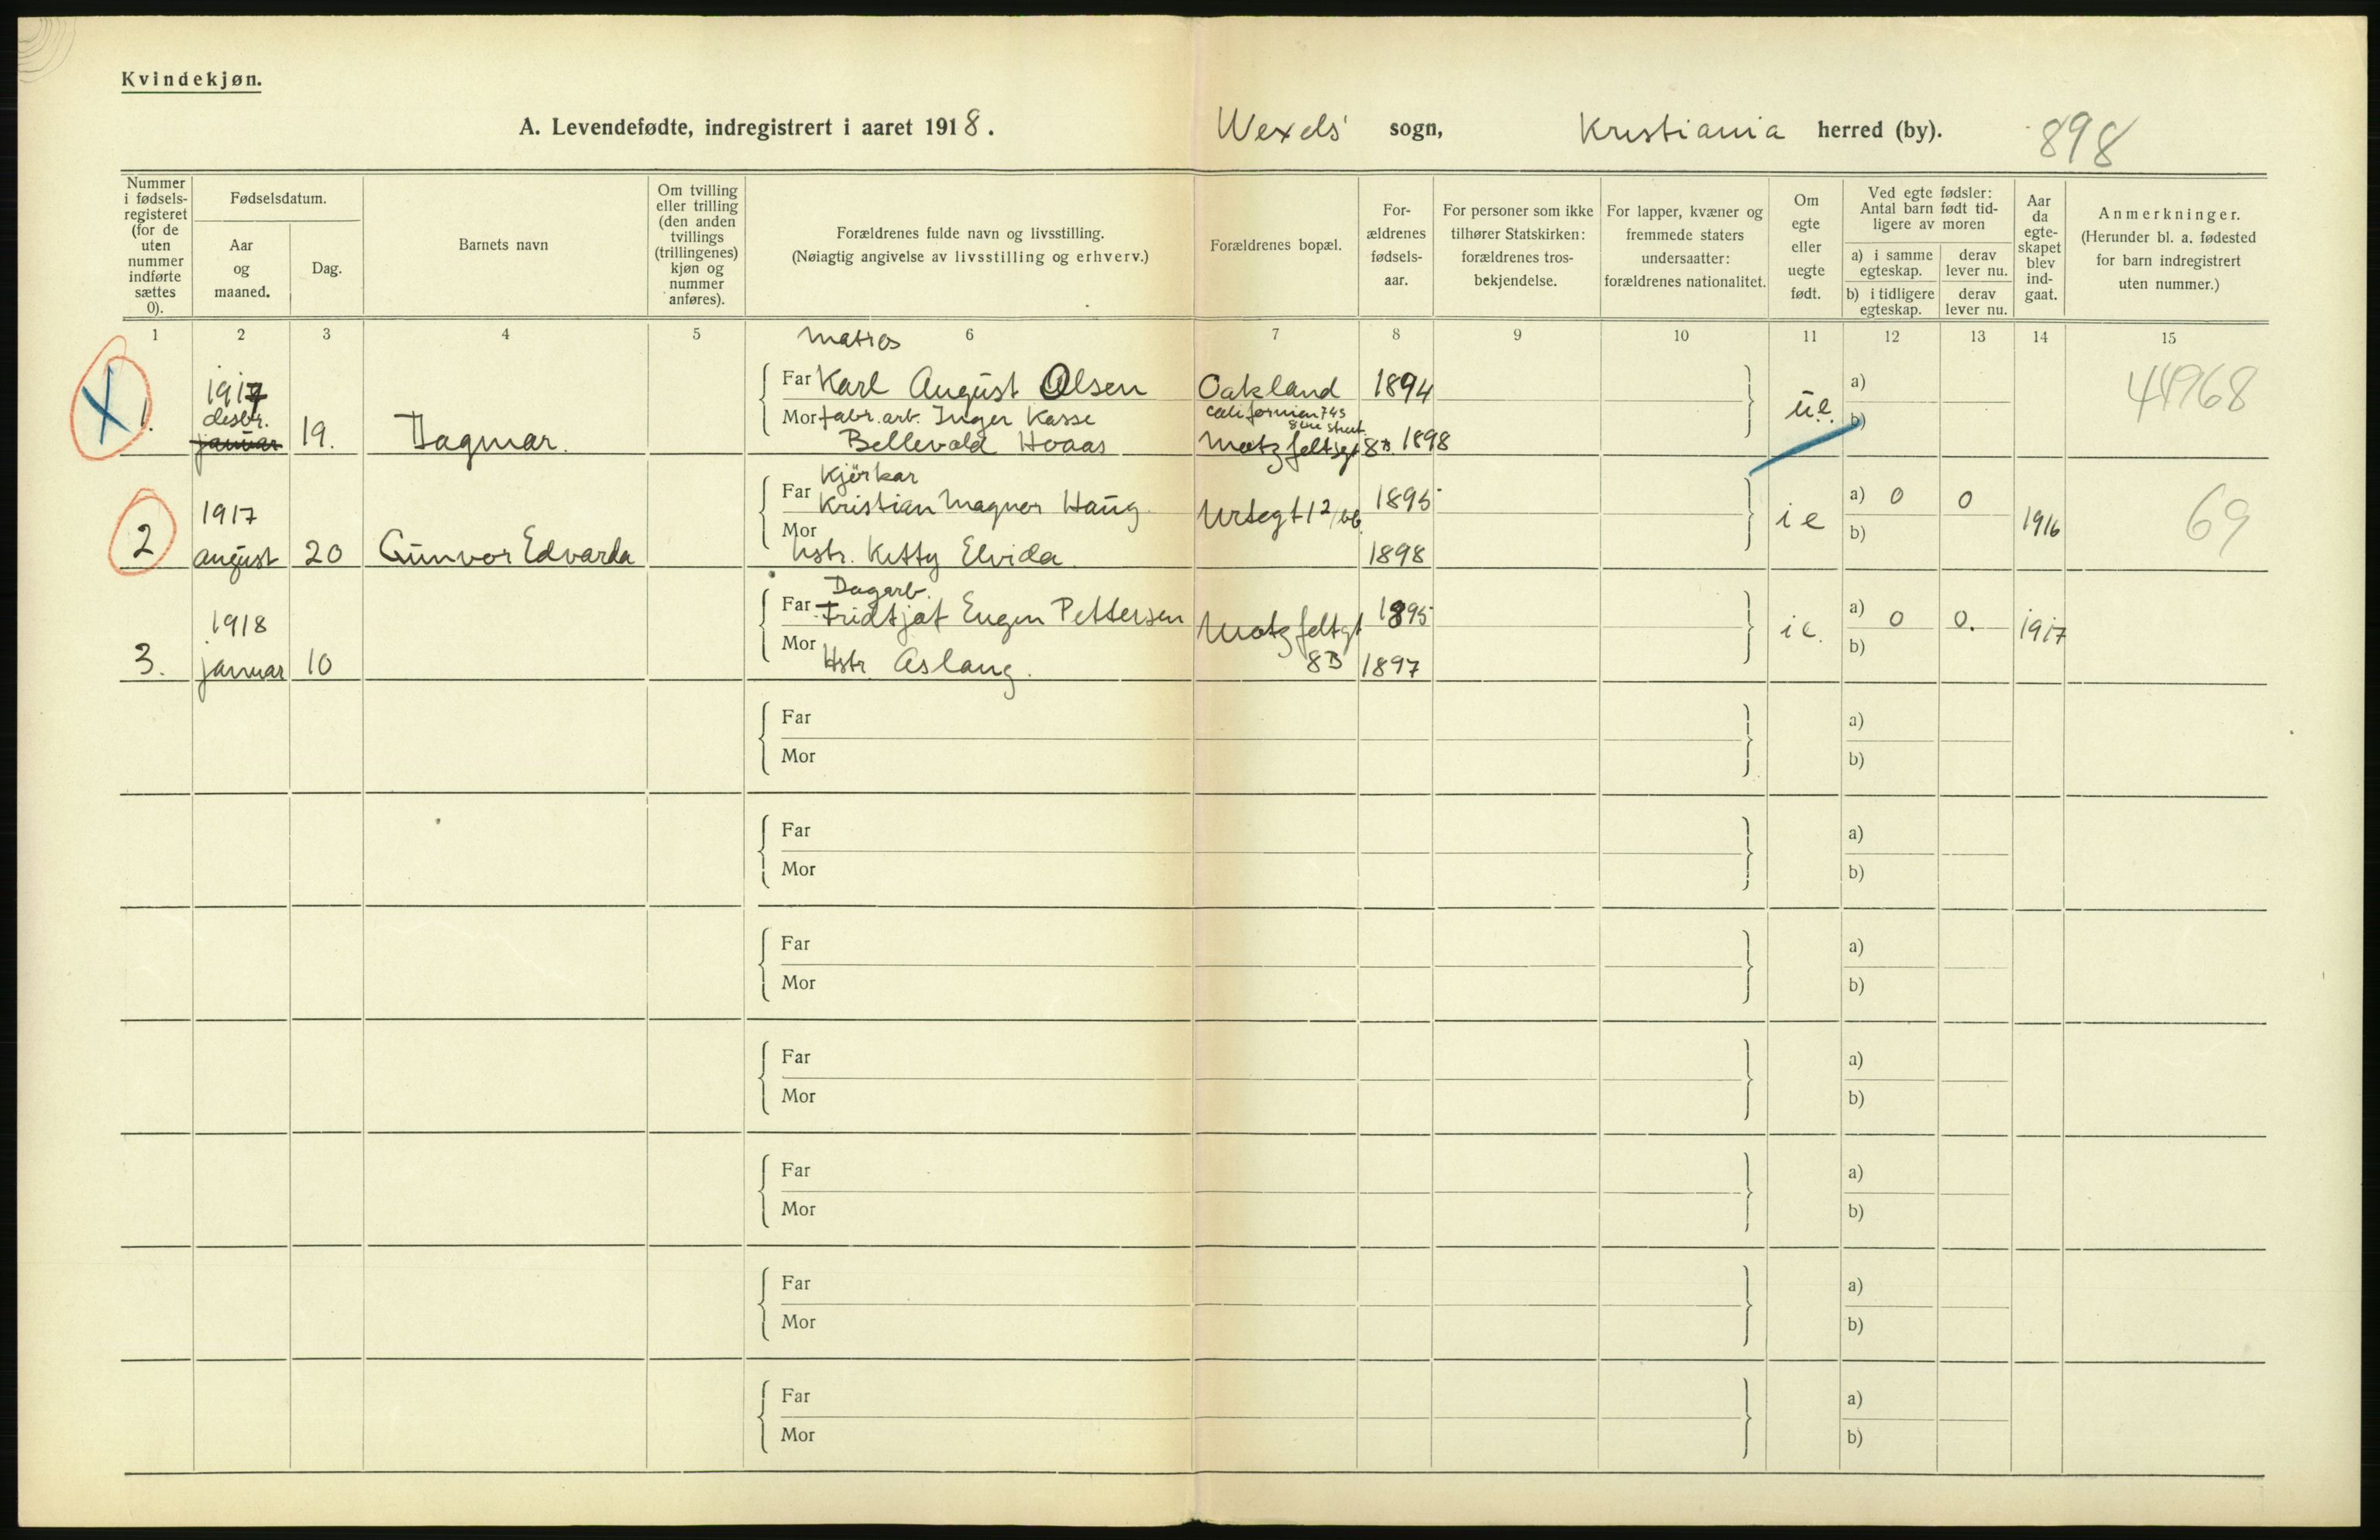 Kvindekjøn.
A. Levendefødte, indregistrert i aaret 1918.
Wexels' sogn, Kristiania herred (by). 898
Nummer i fødsels-registeret (for de uten nummer indførte sættes 0).
Fødselsdatum.
Aar og maaned.
Dag.
Barnets navn
Om tvilling eller trilling (den anden tvillings (trillingenes) kjøn og nummer anføres).
Forældrenes fulde navn og livsstilling.
(Nøiagtig angivelse av livsstilling og erhverv.)
Forældrenes bopæl.
For-ældrenes fødsels-aar.
For personer som ikke tilhører Statskirken: forældrenes tros-bekjendelse.
For lapper, kvæner og fremmede staters undersaatter: forældrenes nationalitet.
Om egte eller uegte født.
Ved egte fødsler: Antal barn født tid-ligere av moren
a) i samme egteskap.
derav lever nu.
b) i tidligere egteskap.
derav lever nu.
Aar da egte-skapet blev ind-gaat.
Anmerkninger.
(Herunder bl. a. fødested for barn indregistrert uten nummer.)
1 2 3 4 5 6 7 8 9 10 11 12 13 14 15
matros
1917 Far Karl August Olsen Oakland 1894 a) 44968
desbr. Mor fabr. arb. Inger Kasse Californien 745 u.e. b)
1. januar 19. Dagmar. Bellevold Hoaas Motzfeltsgt 8B. 1898
Kjørkar
1917 Far Kristian Magner Haug Urtegt 12 1895 i e a) 0 0 1916 69
Mor b)
2 august 20 Gunvor Edvarda hstr. Kitty Elvida. 1898
Dagarb.
1918 Far Fridtjof Eugen Pettersen Motzfeltgt 1895 i e. a) 0 0. 1917
Mor b)
3. januar 10 Hstr. Aslaug. 8B 1897
Far a)
Mor b)
Far a)
Mor b)
Far a)
Mor b)
Far a)
Mor b)
Far a)
Mor b)
Far a)
Mor b)
Far a)
Mor b)